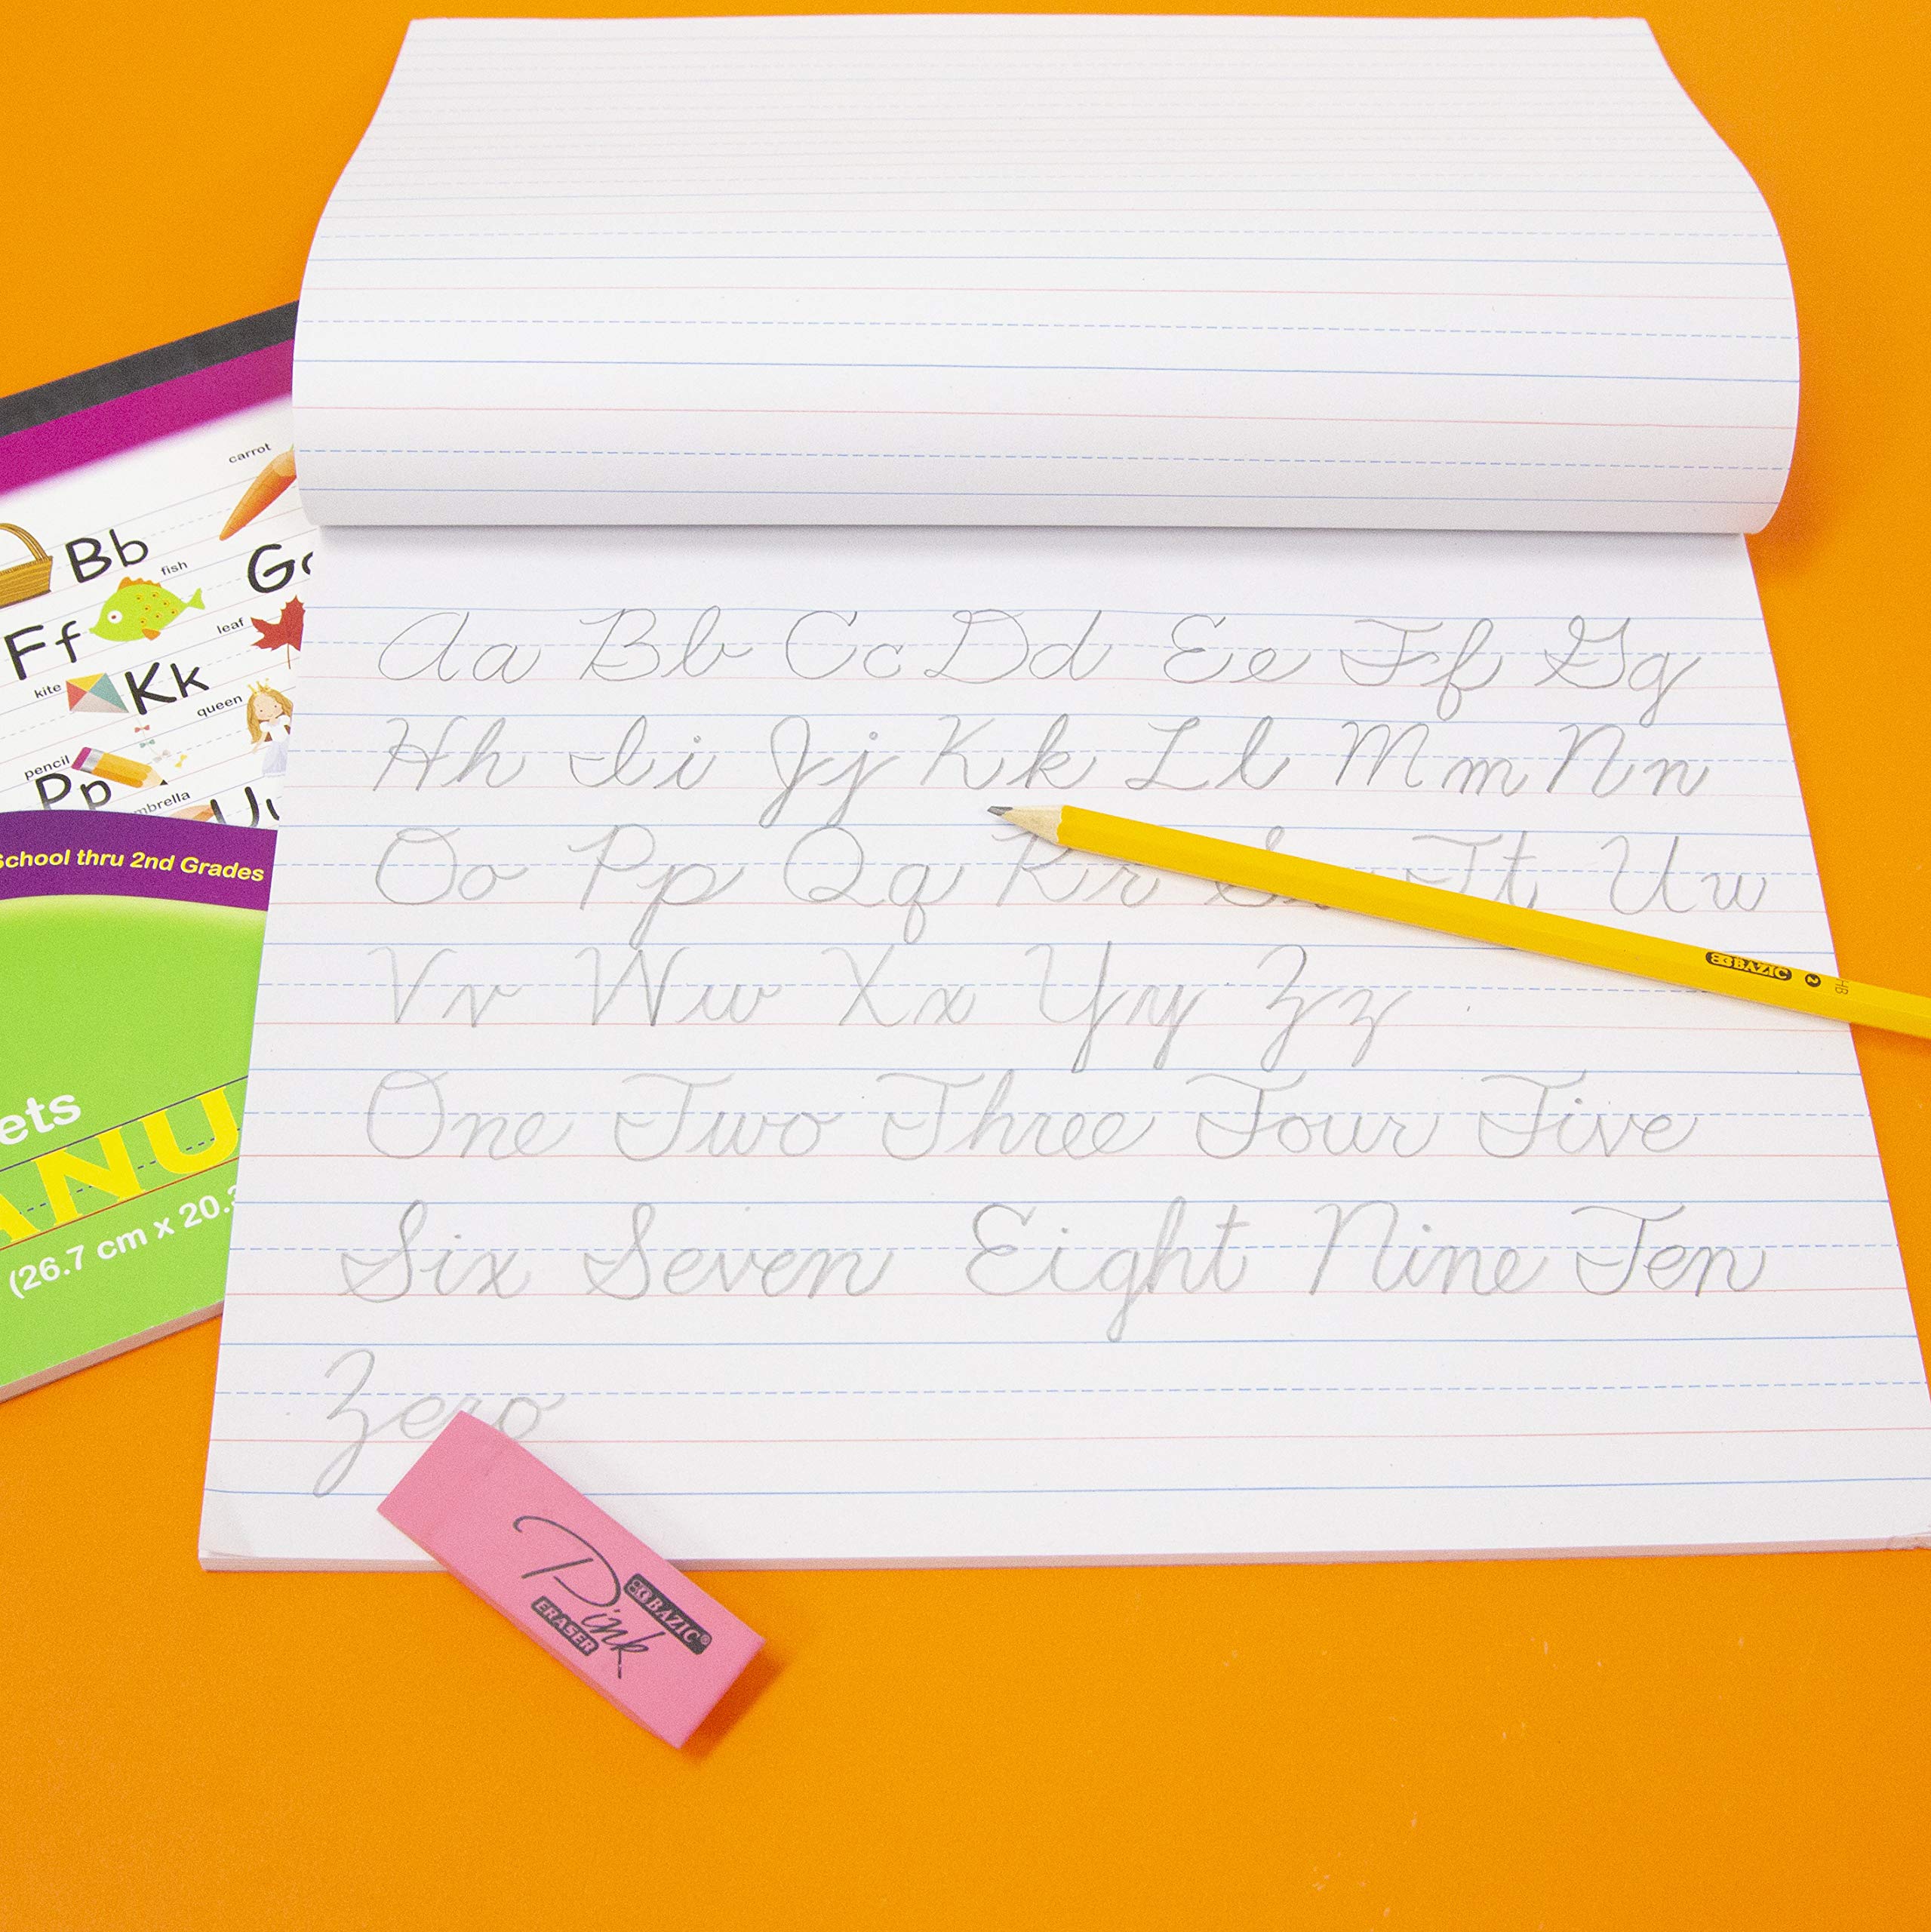 carrot
Bb
fish
Ff
leaf
kite
Kk
queen
pencil
Pp
School thru 2nd Grades
ets
ANU
(26.7 cm x 20.3
Aa Bb Cc Dd Ee Ff Gg
Hh Ii Jj Kk Ll Mm Nn
Oo Pp Qq Rr Tt Uu
Vv Ww Xx Yy Zz
One Two Three Four Five
Six Seven Eight Nine Ten
Zero
BAZIC 2 HB
Pink
BAZIC®
ERASER